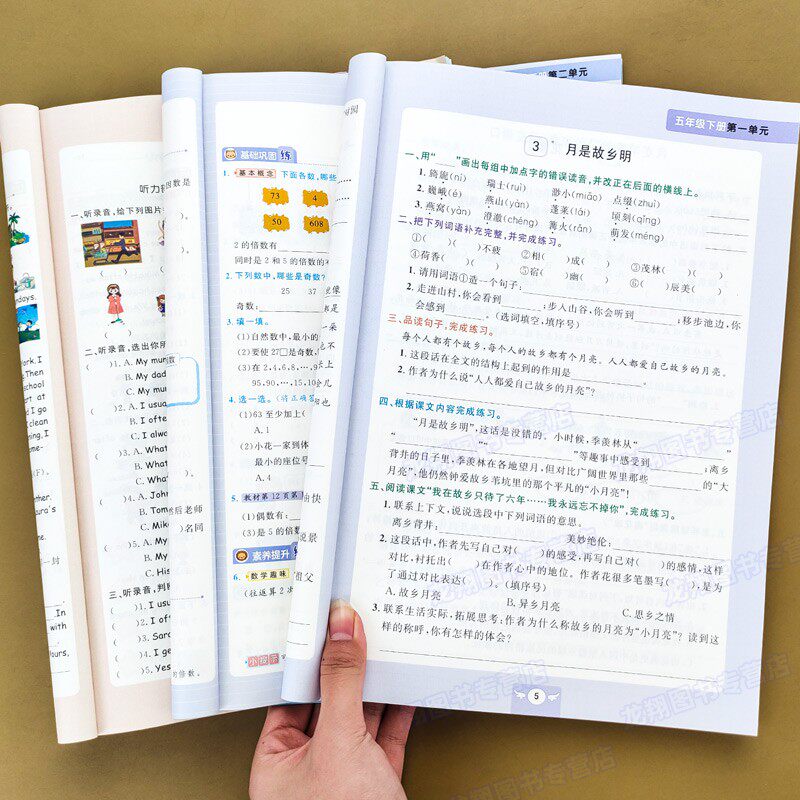 第二单元
五年级下册第一单元
3 月是故乡明
一、用“____”画出每组中加点字的错误读音,并改正在后面的横线上。
1. 旖旎(ní) 瑞士(ruì) 渺小(miǎo) 点缀(zhuì)
2. 巍峨(é) 燕山(yàn) 蓬莱(lái) 顷刻(qīng)
3. 燕窝(yàn) 澄澈(chéng) 篝火(gōu) 萌发(méng)
二、把下列词语补充完整,并完成练习。
①( )( )不疲 ②相( )成( ) ③茂林( )( )
④荷香( )( ) ⑤宿( )幽( ) ⑥( )辰美( )
1. 请用词语①造一个句子:
2. 走进山村,你会看到____;步入山谷,你会听到____;移步池边,你
会感到____。(选词填空,填序号)
三、品读句子,完成练习。
每个人都有个故乡,每个人的故乡都有个月亮。人人都爱自己故乡的月亮。
1. 这段话在全文的结构上起到的作用是
2. 作者为什么说“人人都爱自己故乡的月亮”?
四、根据课文内容完成练习。
“月是故乡明”,这话是没错的。小时候,季羡林从“
”“ ”等趣事中感到____;离乡
背井的日子里,季羡林在各地望月,但对比广阔世界里那些____的“大
月亮”,他仍然钟爱故乡苇坑里的那个平凡的“小月亮”!
五、阅读课文“我在故乡只待了六年……我永远忘不掉你”,完成练习。
1. 联系上下文,说说选段中下列词语的意思。
离乡背井: 美妙绝伦:
2. 这段话中,作者先写自己对( )的感受,再写自己对( )的感情,这样
对比,衬托出( )在作者心中的地位。作者花很多笔墨写( ),是为
了通过对比表达( )。(填序号)
A. 故乡月亮 B. 异乡月亮 C. 思乡之情
3. 联系生活实际,拓展思考:作者为什么称故乡的月亮为“小月亮”?读到这
样的称呼,你有怎样的体会?
5
基础巩固 练
1. 基本概念 下面各数,哪些
73 4
50 608
2的倍数有
同时是2和5的倍数的
2. 下列数中,哪些是奇数?
25 37
奇数:
3. 填一填。
(1)自然数中,最小的
(2)要使27□是奇数,
(3)在2,4,6,8,…,
95,90,…,15,10
4. 选一选。(将正确答
(1)63至少加上(
A. 1
(2)小花一家到体
最小的座位号
A. 4
5. 教材第12页第
(1)偶数有:
(2)是5的倍数
素养提升
6. 数学趣味
(往返算2次
听力
一、听录音,给下列图片
二、听录音,选出你所
( )1. A. My mum
B. My dad
C. My mu
( )2. A. I usua
B. I ofte
C. I alwa
( )3. A. What
B. What
C. What
( )4. A. John
B. Tom
C. Mike
( )5. A. My
B. My
C. His
三、听录音,判断
( )1. I usu
( )2. I ofte
( )3. Sara
( )4. I us
( )5. Yes
龙翔图书专营店